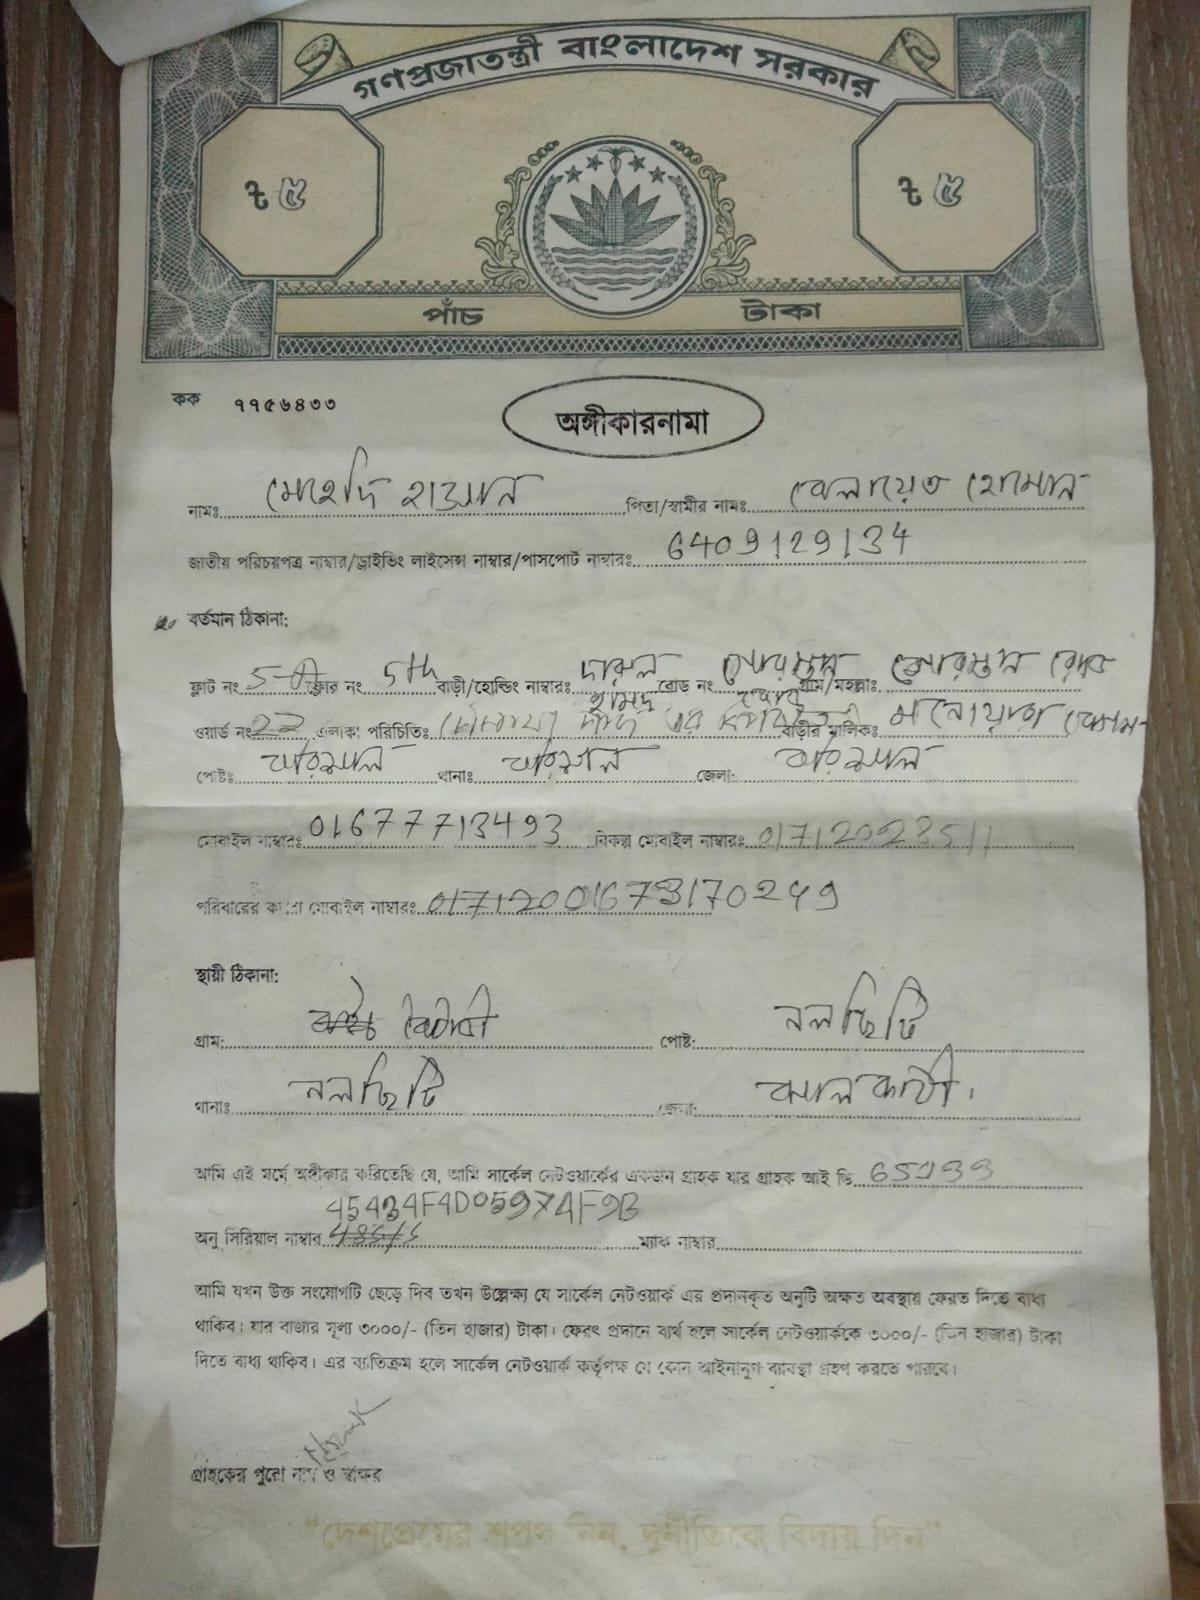 গণপ্রজাতন্ত্রী বাংলাদেশ সরকার
৳ ৫ ৳ ৫
পাঁচ টাকা
কক ৭৭৫৬৪৩৩
অঙ্গীকারনামা
নামঃ মেহেদি হাসান পিতা/স্বামীর নামঃ বেলায়েত হোসেন
জাতীয় পরিচয়পত্র নাম্বার/ড্রাইভিং লাইসেন্স নাম্বার/পাসপোর্ট নাম্বারঃ 6409129134
বর্তমান ঠিকানা:
ফ্লাট নং 5-A ফ্লোর নং 5th বাড়ী/হোল্ডিং নাম্বারঃ রোড নং গোরস্তান গ্রাম/মহল্লাঃ গোরস্তান রোড
ওয়ার্ড নং 22 এলাকা পরিচিতিঃ এর বিপরীতে বাড়ীর মালিকঃ মনোয়ারা
পোষ্টঃ বরিশাল থানাঃ বরিশাল জেলা: বরিশাল
মোবাইল নাম্বারঃ 01677713493 বিকল্প মোবাইল নাম্বারঃ 01712028511
পরিবারের কারো মোবাইল নাম্বারঃ 01673170249
স্থায়ী ঠিকানা:
গ্রাম: পোষ্ট: নলছিটি
থানাঃ নলছিটি জেলা: ঝালকাঠী।
আমি এই মর্মে অঙ্গীকার করিতেছি যে, আমি সার্কেল নেটওয়ার্কের একজন গ্রাহক যার গ্রাহক আই ডি
45434F4D05974F9B
অনু সিরিয়াল নাম্বার ম্যাক নাম্বার
আমি যখন উক্ত সংযোগটি ছেড়ে দিব তখন উল্লেক্ষ্য যে সার্কেল নেটওয়ার্ক এর প্রদানকৃত অনুটি অক্ষত অবস্থায় ফেরত দিতে বাধ্য
থাকিব। যার বাজার মূল্য ৩০০০/- (তিন হাজার) টাকা। ফেরৎ প্রদানে ব্যর্থ হলে সার্কেল নেটওয়ার্ককে ৩০০০/- (তিন হাজার) টাকা
দিতে বাধ্য থাকিব। এর ব্যতিক্রম হলে সার্কেল নেটওয়ার্ক কর্তৃপক্ষ যে কোন আইনানুগ ব্যাবস্থা গ্রহণ করতে পারবে।
গ্রাহকের পুরো নাম ও স্বাক্ষর
"দেশপ্রেমের শপথ নিন, দুর্নীতিকে বিদায় দিন"